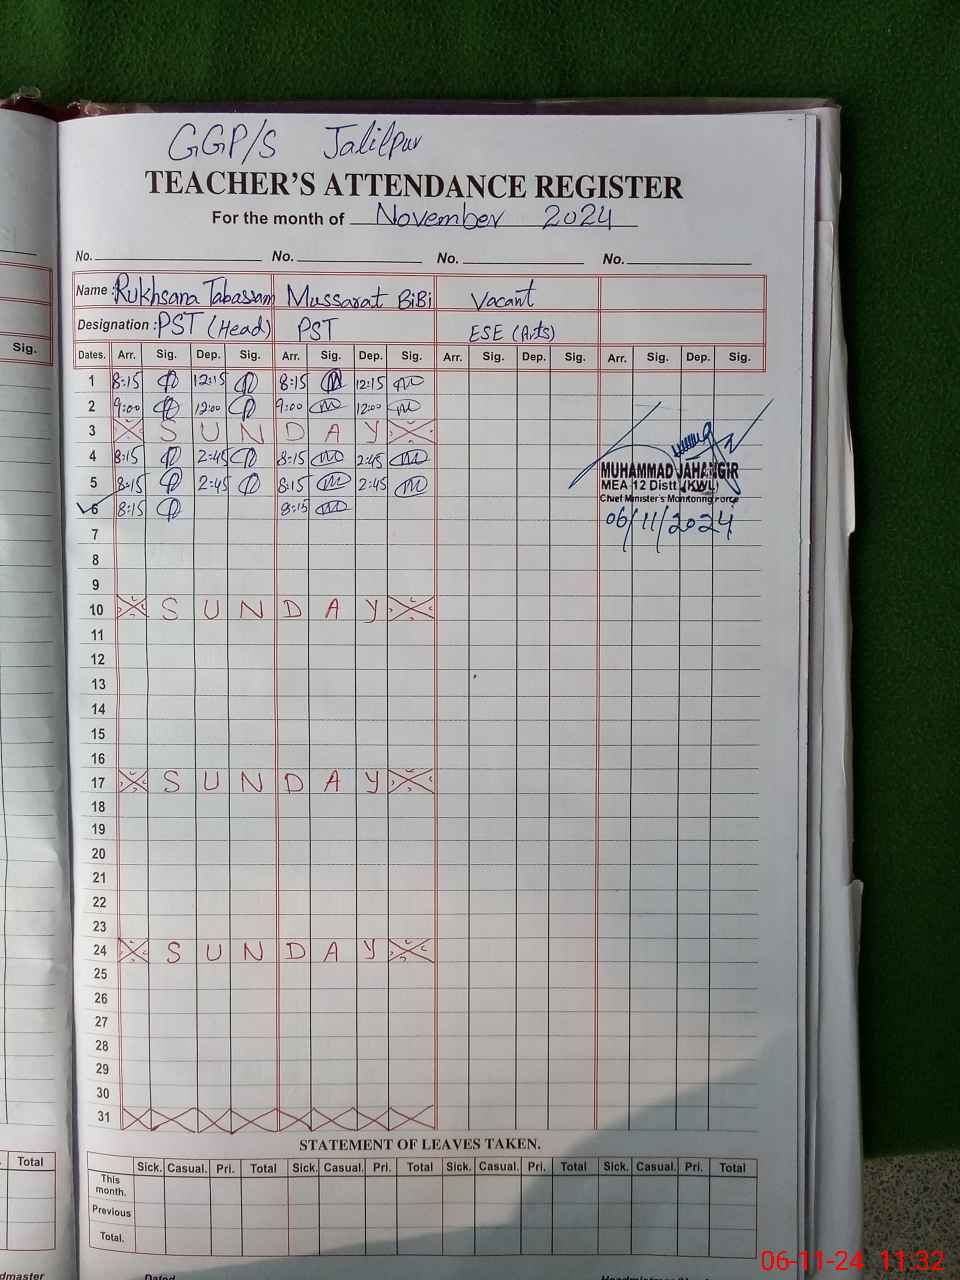 GGP/S Jalilpur
TEACHER'S ATTENDANCE REGISTER
For the month of November 2024
No. No. No. No.
Name : Rukhsana Tabassam Mussarat BiBi Vacant
Designation : PST (Head) PST ESE (Arts)
Sig.
Dates. Arr. Sig. Dep. Sig. Arr. Sig. Dep. Sig. Arr. Sig. Dep. Sig. Arr. Sig. Dep. Sig.
1 8:15 12:15 8:15 12:15
2 9:00 12:00 9:00 12:00
3 SUNDAY
4 8:15 2:45 8:15 2:45
5 8:15 2:45 8:15 2:45
6 8:15 8:15
MUHAMMAD JAHANGIR
MEA 12 Distt (KWL)
Chief Minister's Monitoring Force
06/11/2024
7
8
9
10 SUNDAY
11
12
13
14
15
16
17 SUNDAY
18
19
20
21
22
23
24 SUNDAY
25
26
27
28
29
30
31
STATEMENT OF LEAVES TAKEN.
Total
Sick. Casual. Pri. Total Sick. Casual. Pri. Total Sick. Casual. Pri. Total Sick. Casual. Pri. Total
This
month.
Previous
Total.
dmaster Dated
06-11-24 11:32